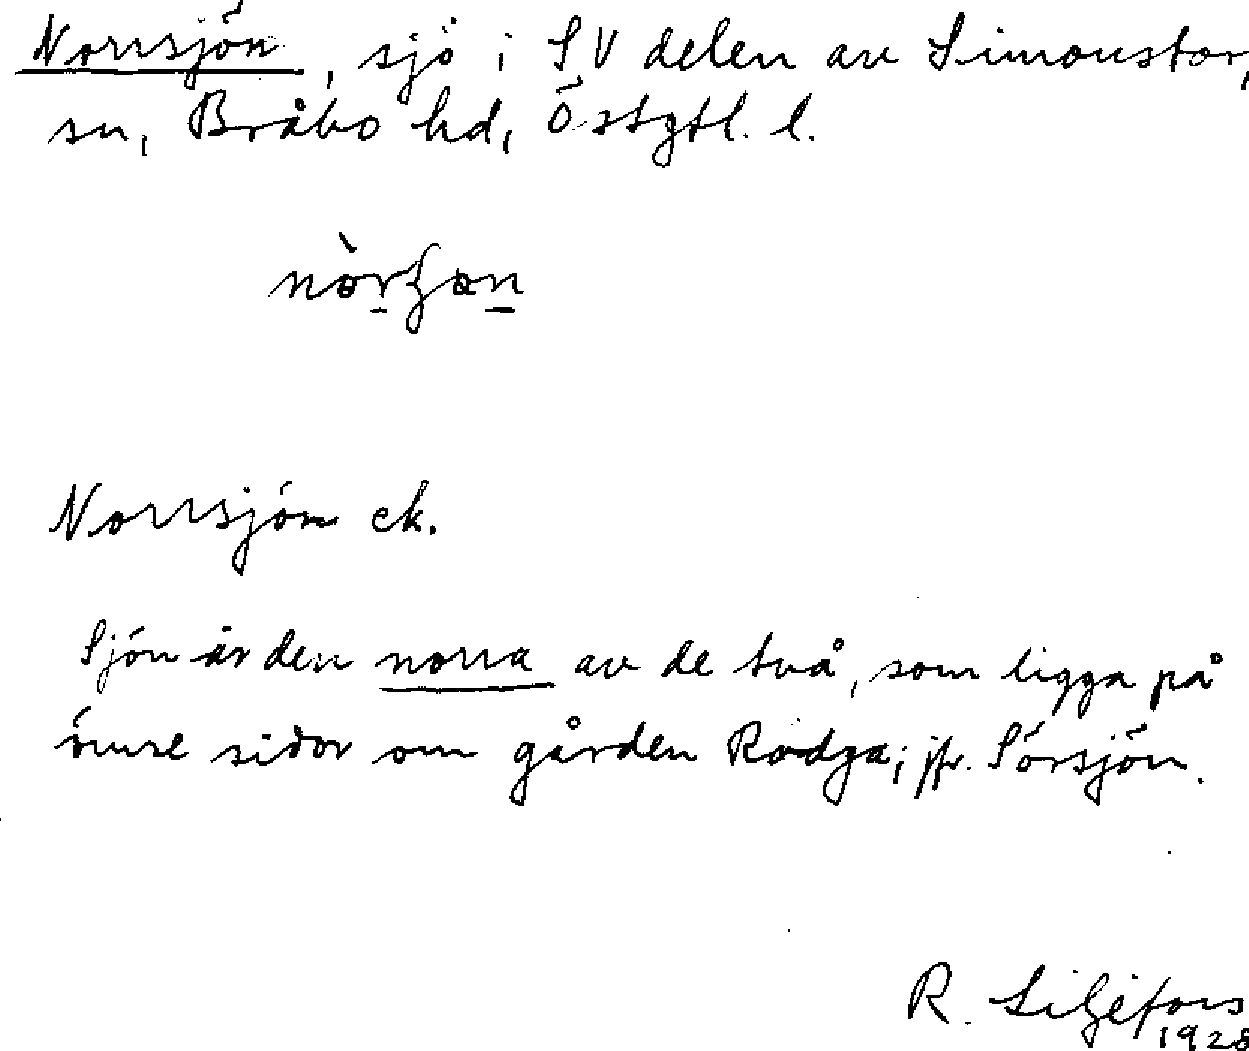 Norrsjön, sjö i SV delen av Simonstor,
sn, Bråbo hd, Östgtl. l.
Norrsjön ek.
Sjön är den norra av de två, som ligga på
ömse sidor om gården Rodga; jfr. Sörsjön.
R. Liljefors
1928